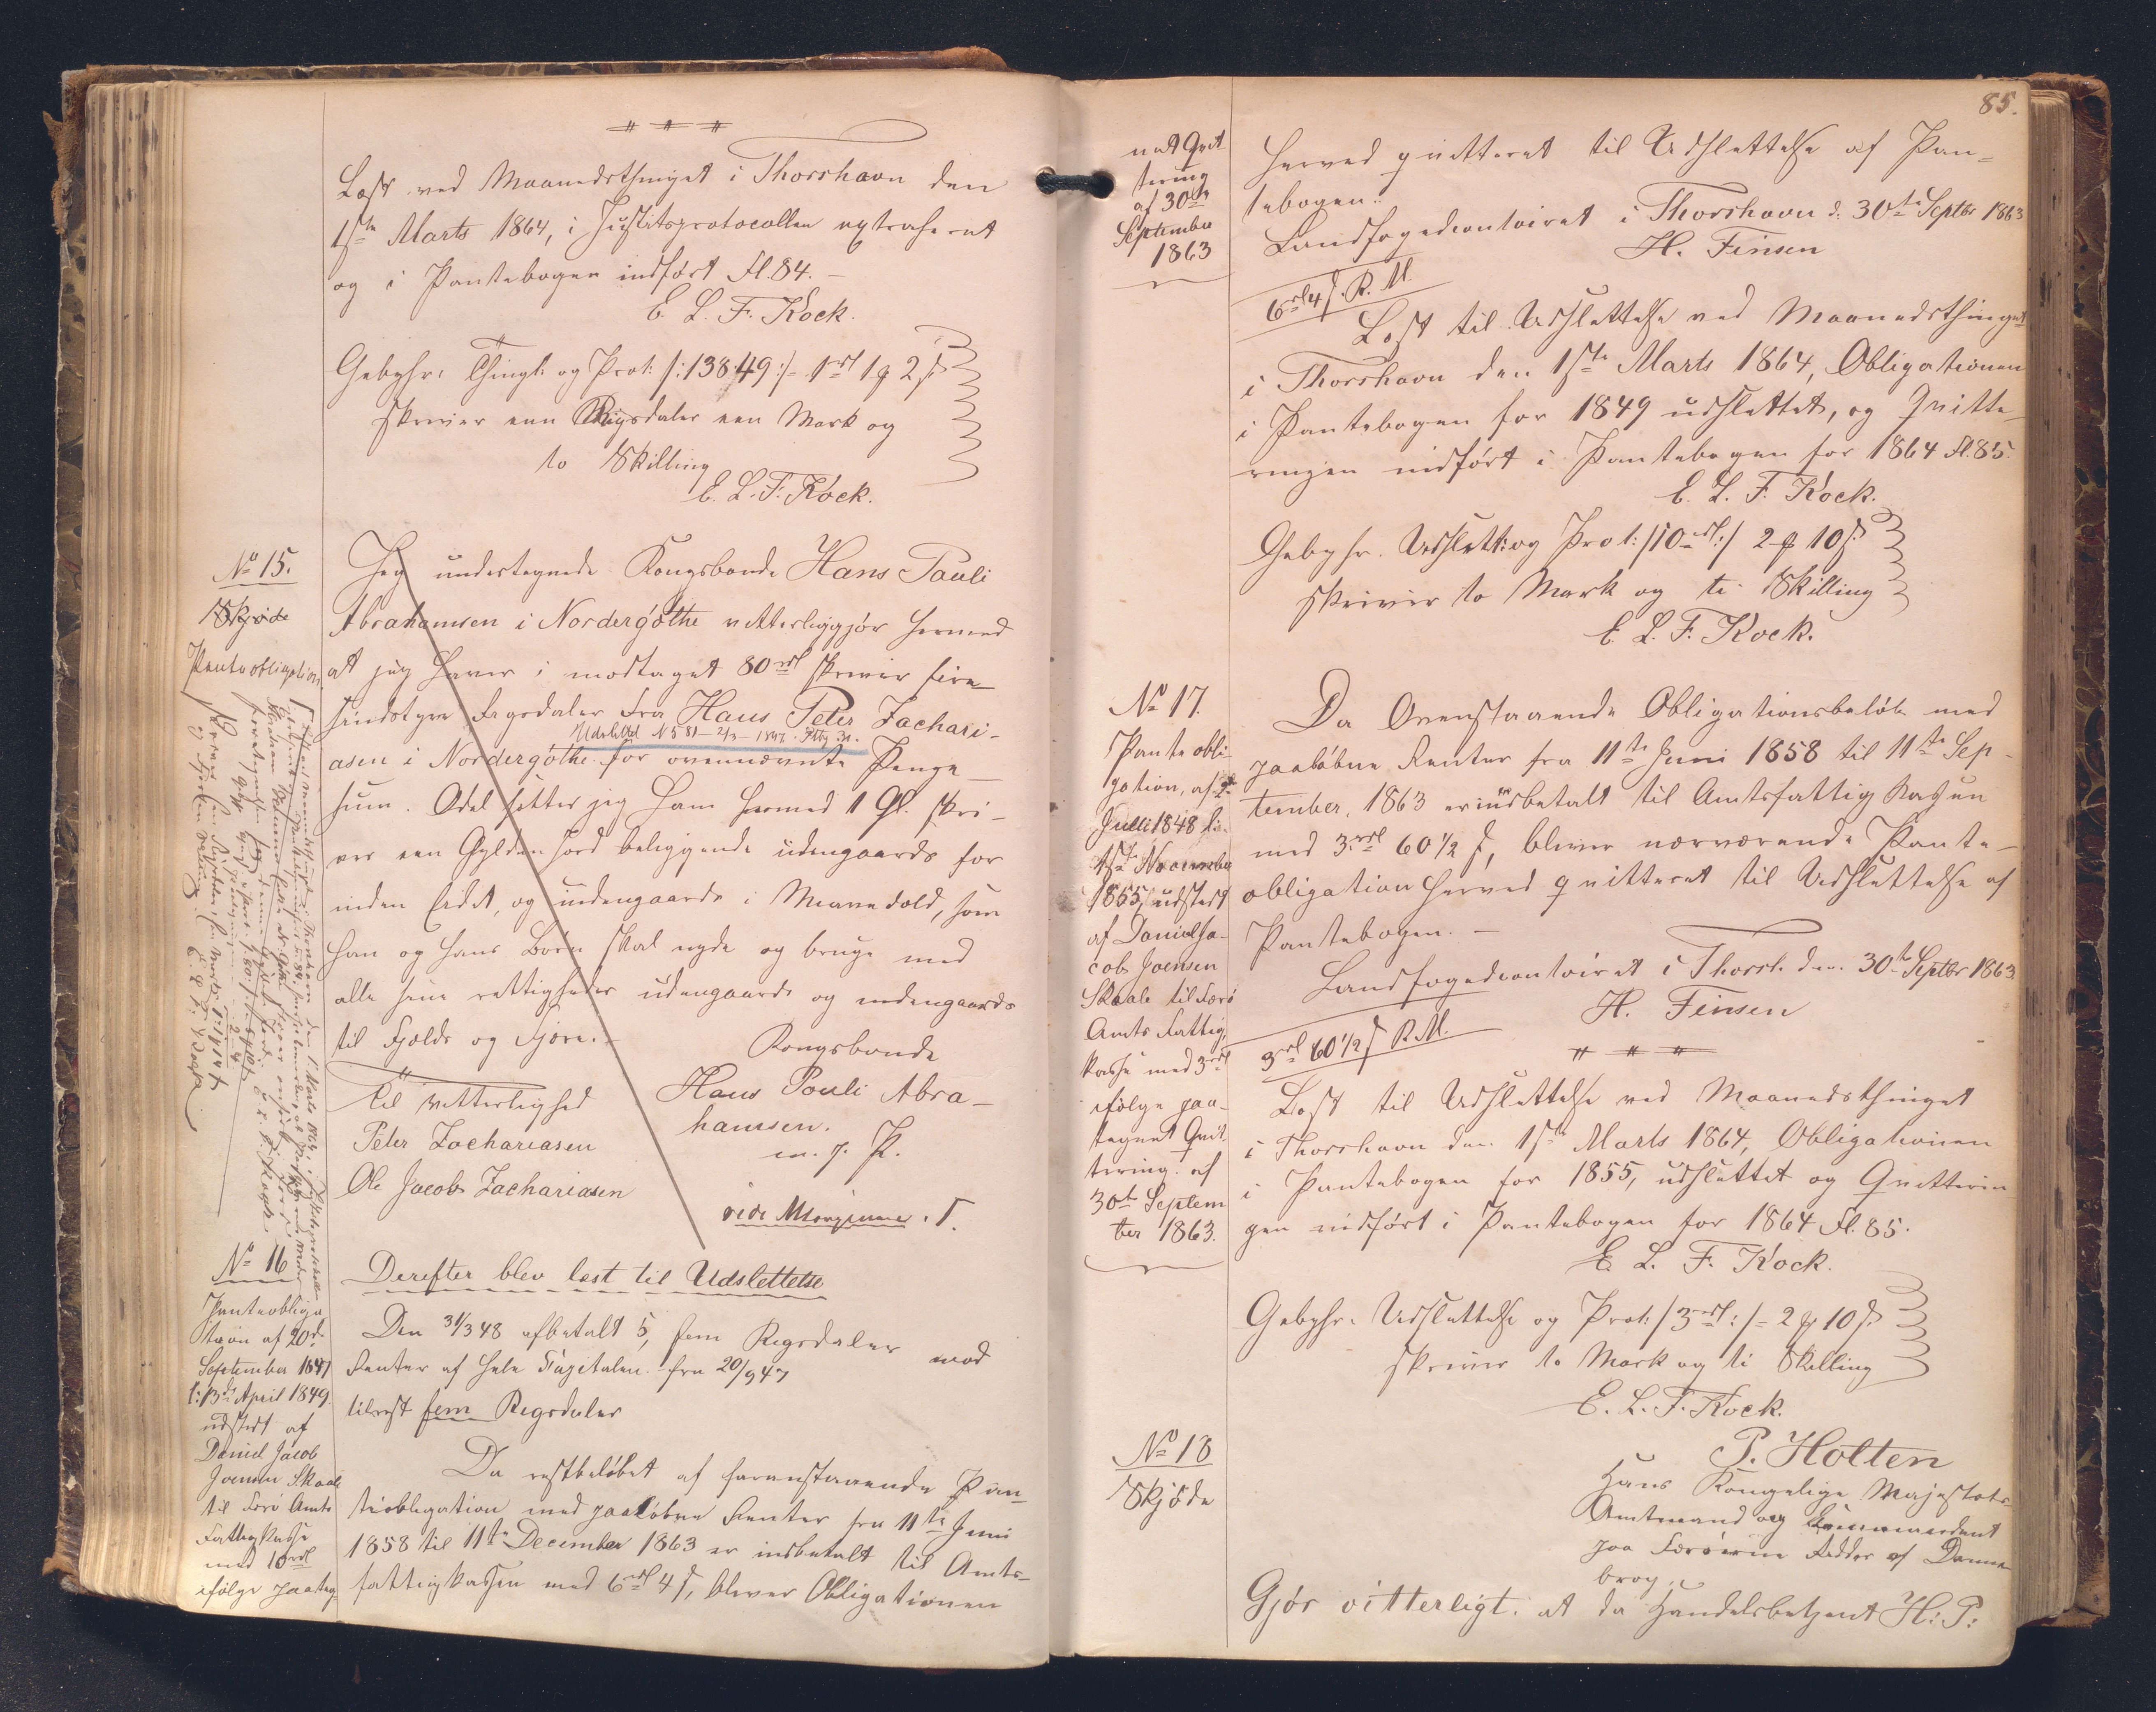 Læst ved Maanedsthinget i Thorshavn den
1ste Marts 1864, i Justitsprotocollen extraheret
og i Pantebogen indført Fl. 84. —
E. L. F. Kock.
Gebyhr: Thingl: og Prot: /:138 49:/ - 1rd 1 2
skriver een Rigsdaler een Mark og
to Skilling
E. L. F. Kock.
No 15.
Skjøde
Panteobligation
Jeg undertegnede Kongsbonde Hans Pauli
Abrahamsen i Nordergøthe vitterliggjør hermed
at jeg haver i modtaget 80rd skriver fire
sindstyve Rigsdaler fra Hans Peter Zachari-
Udslettet N 581 - 2/3 - 1847
asen i Nordergøthe for ovennævnte Penge
sum. Odel setter jeg ham hermed 1 Gl. skri-
ver een Gylden Jord beliggende udengaards for
inden Eidet, og indengaards i
han og hans Børn skal nyde og bruge med
alle sine rettigheder udengaards og indengaards
til Fjelds og Fjøre. -
Kongsbonde
Til Vitterlighed
Hans Pauli Abra-
hamsen.
m. f. P.
Peter Zachariasen
Ole Jacob Zachariasen
vide Marginen. Γ.
No 16
Panteobliga
tion af 20de
September 1847
l: 13de April 1849
udstedt af
Daniel Jacob
Joensen Skaale
til Færø Amts
Fattigkasse
med 10rd
ifølge paateg
Derefter blev læst til Udslettelse
Den 31/3 48 afbetalt 5, fem Rigsdaler med
Renter af hele Capitalen fra 20/9 47
tilrest fem Rigsdaler
Da restbeløbet af foranstaaende Pan-
teobligation med paaløbne Renter fra 11te Juni
1858 til 11te December 1863 er indbetalt til Amts-
fattigkassen med 6rd 4 s, bliver Obligationen
85.
net Qvit
tering
af 30te
September
1863
herved qvitteret til Udslettelse af Pan-
tebogen.
Landfogedcontoiret i Thorshavn d. 30te Septbr 1863
H. Finsen
6rd 4 s. R. M.
Læst til Udslettelse ved Maanedsthinget
i Thorshavn den 1ste Marts 1864, Obligationen
i Pantebogen for 1849 udslettet, og Qvitte-
ringen indført i Pantebogen for 1864 Fl. 85.
E. L. F. Kock.
Gebyhr. Udslett: og Prot: /:10rd:/ 2 10
skriver to Mark og ti Skilling
E. L. F. Kock.
No 17.
Pante obli-
gation, af
Juli 1848 l:
1ste November
1855, udstedt
af Daniel Ja-
cob Joensen
Skaale til Færø
Amts Fattig
kasse med 3rd
ifølge paa-
tegnet Qvit
tering af
30te Septem
ber 1863.
Da Ovenstaaende Obligationsbeløb med
paaløbne Renter fra 11te Juni 1858 til 11te Sep-
tember 1863 er indbetalt til Amtsfattigkassen
med 3rd 60 1/2 s, bliver nærværende Pante-
obligation herved qvitteret til Udslettelse af
Pantebogen. —
Landfogedcontoiret i Thorsh. den 30te Septbr 1863
H. Finsen
3rd 60 1/2 s R. M.
Læst til Udslettelse ved Maanedsthinget
i Thorshavn den 1ste Marts 1864, Obligationen
i Pantebogen for 1855, udslettet og Qvitterin
gen indført i Pantebogen for 1864 Fl. 85.
E. L. F. Kock.
Gebyhr. Udslettelse og Prot: /3rd:/ - 2 10
skriver to Mark og ti Skilling
E. L. F. Kock.
No 18
Skjøde
P. Holten
Hans Kongelige Majestæts
Amtmand og Commandant
paa Færøerne Ridder af Danne
brog:
Gjør vitterligt: at da Handelsbetjent H: P: